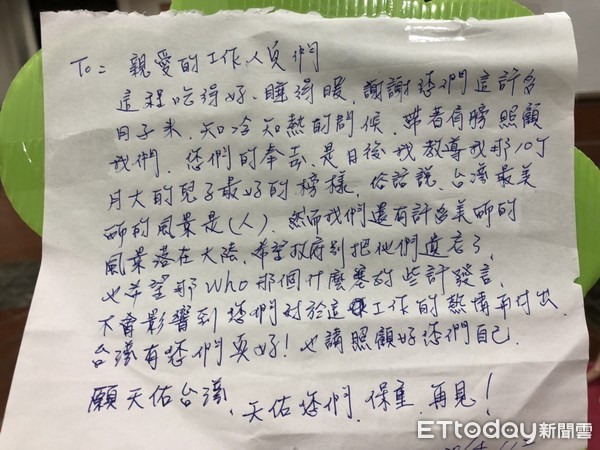 To= 親愛的工作人員們
這裡吃得好、睡得暖，謝謝您們這許多
日子來，知冷知熱的問候，帶著肩膀照顧
我們，您們的奉公，是日後我教導我那10個
月大的兒子最好的榜樣，俗話說，台灣最美
的風景是(人)，然而我們還有許多美的
風景落在大陸，希望政府別把他們遺忘了，
也希望那WHO那個什麼塞的些許發言，
不會影響到您們對於這工作的熱情再付出，
台灣有您們真好！也請照顧好您們自己，
願天佑台灣、天佑您們，保重，再見！
ETtoday新聞雲